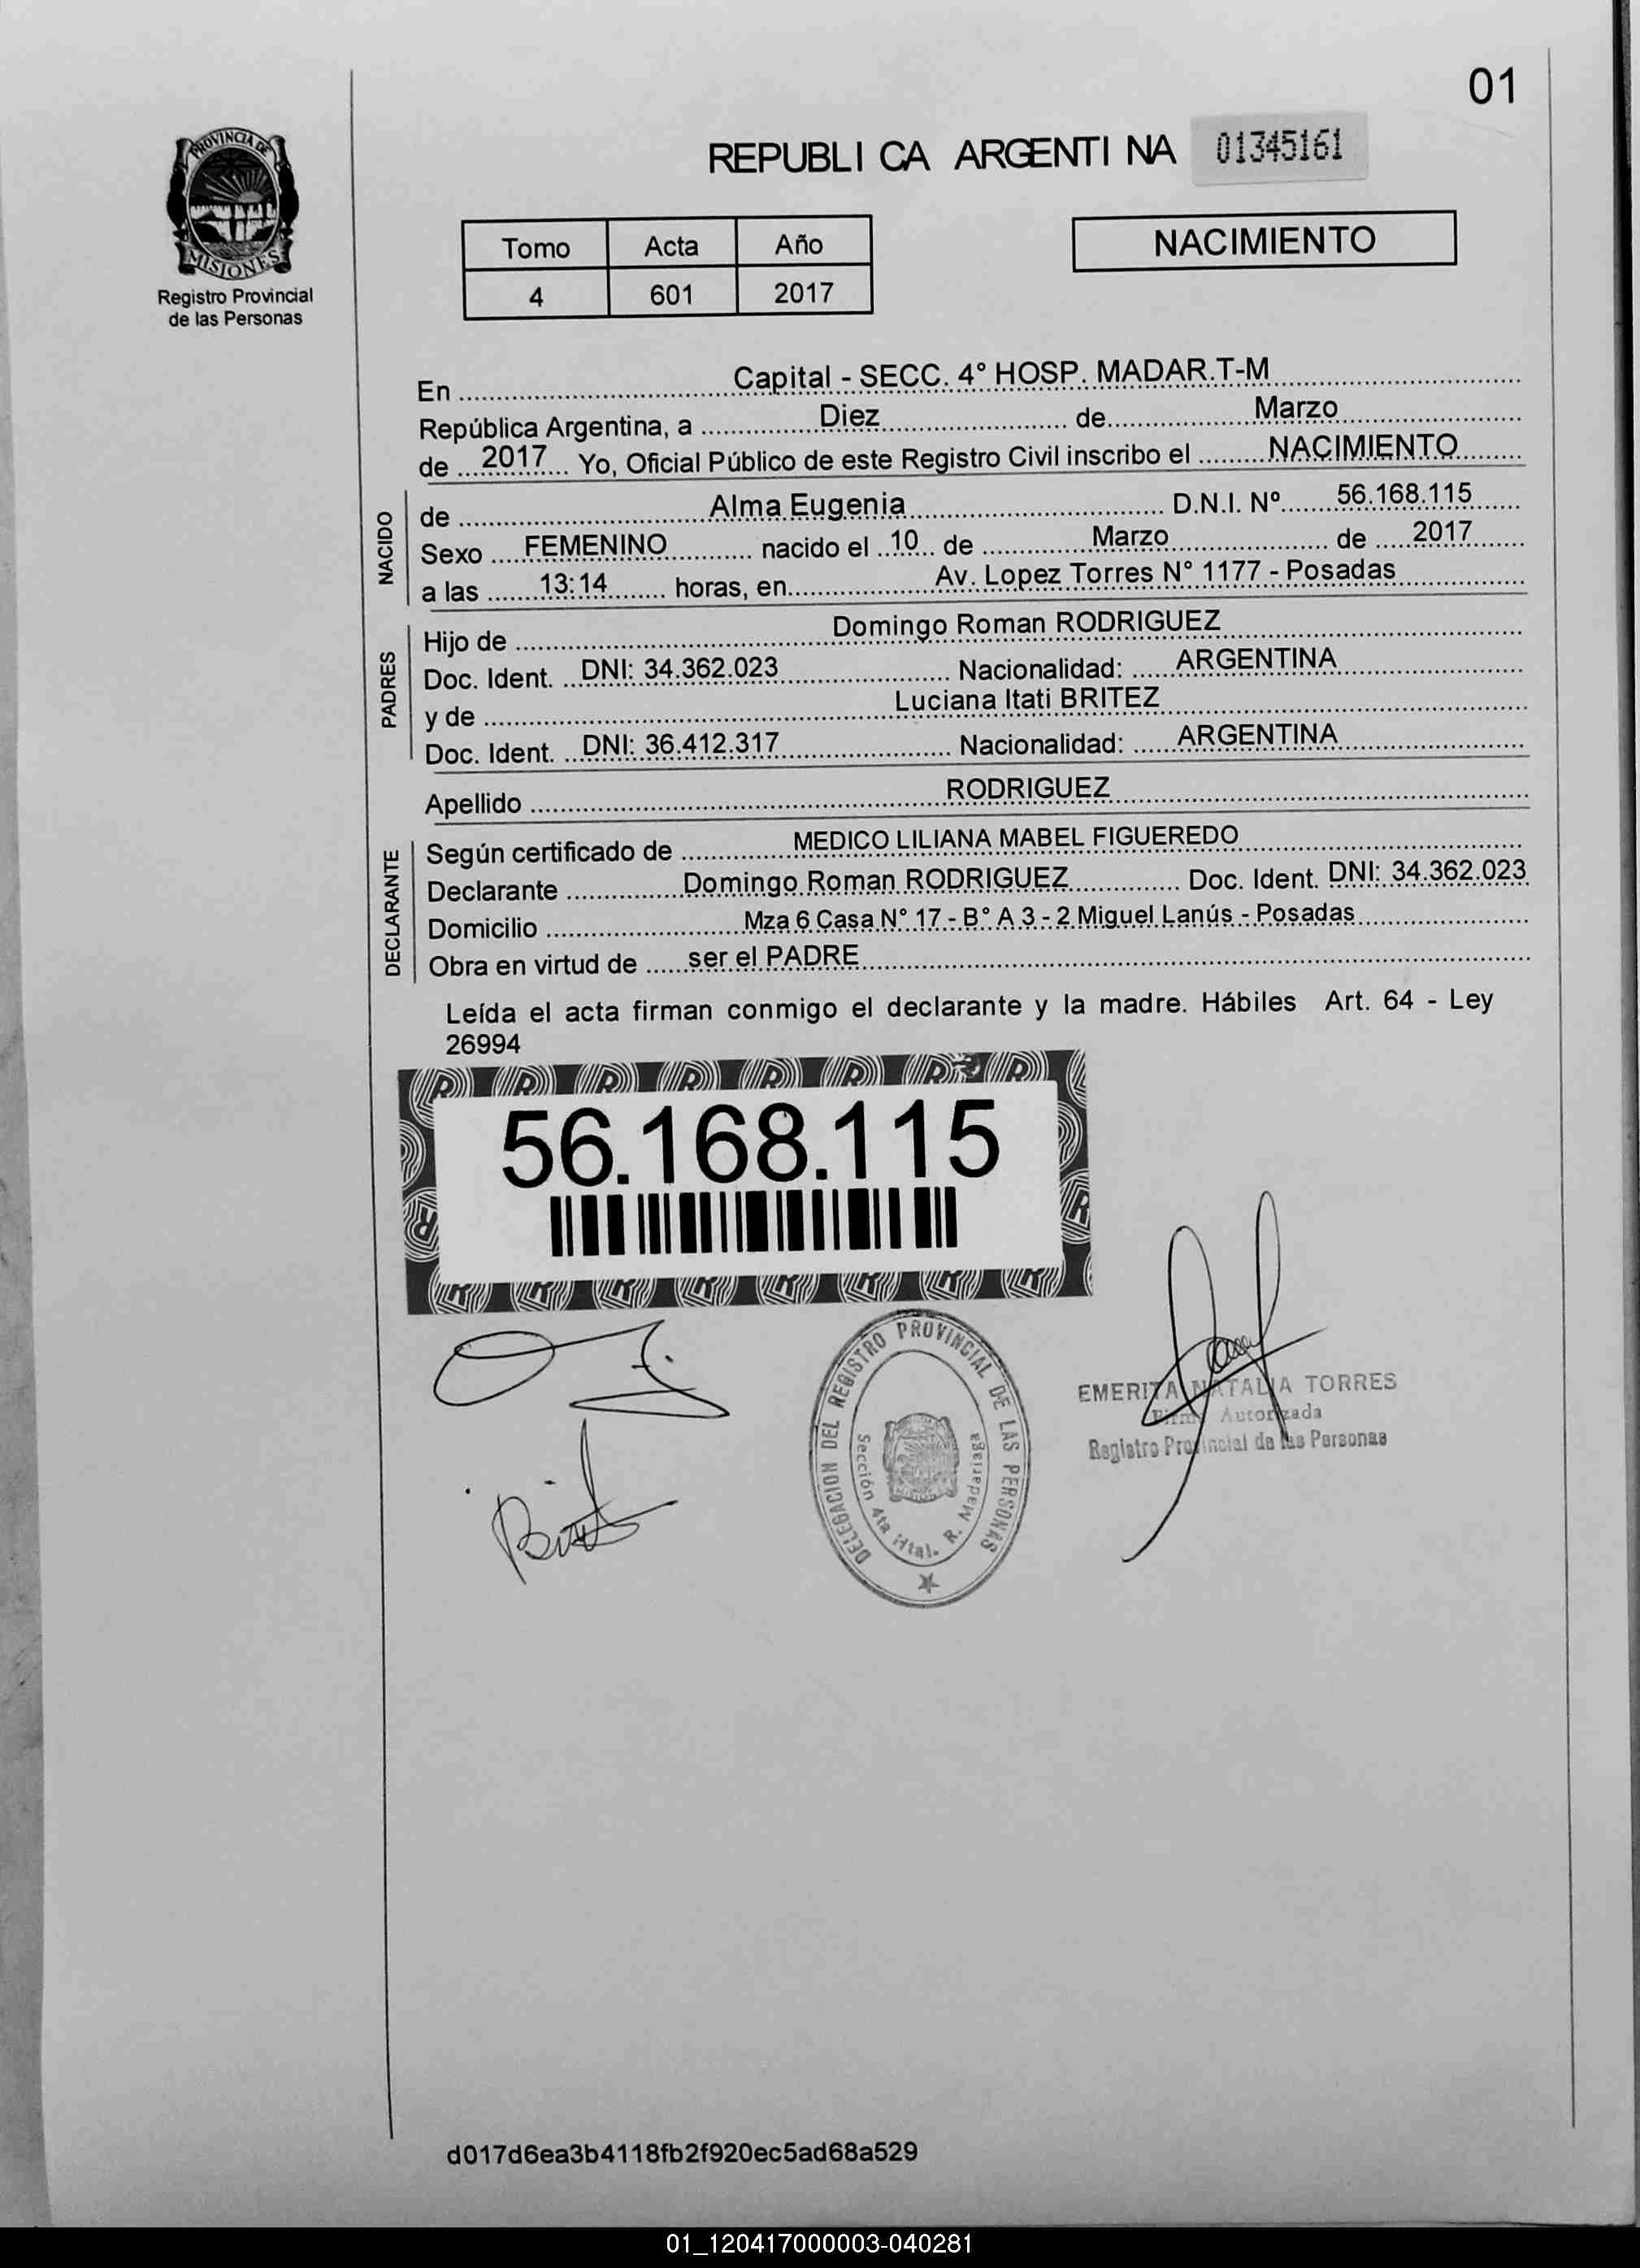 01
PROVINCIA DE
MISIONES
Registro Provincial
de las Personas
REPUBLICA ARGENTINA 01345161
Tomo Acta Año
4 601 2017
NACIMIENTO
En Capital - SECC. 4° HOSP. MADAR.T-M
República Argentina, a Diez de Marzo
de 2017 Yo, Oficial Público de este Registro Civil inscribo el NACIMIENTO
NACIDO
de Alma Eugenia D.N.I. Nº 56.168.115
Sexo FEMENINO nacido el 10 de Marzo de 2017
a las 13:14 horas, en Av. Lopez Torres N° 1177 - Posadas
PADRES
Hijo de Domingo Roman RODRIGUEZ
Doc. Ident. DNI: 34.362.023 Nacionalidad: ARGENTINA
y de Luciana Itati BRITEZ
Doc. Ident. DNI: 36.412.317 Nacionalidad: ARGENTINA
Apellido RODRIGUEZ
DECLARANTE
Según certificado de MEDICO LILIANA MABEL FIGUEREDO
Declarante Domingo Roman RODRIGUEZ Doc. Ident. DNI: 34.362.023
Domicilio Mza 6 Casa N° 17 - B° A 3 - 2 Miguel Lanús - Posadas
Obra en virtud de ser el PADRE
Leída el acta firman conmigo el declarante y la madre. Hábiles Art. 64 - Ley
26994
56.168.115
DELEGACION DEL REGISTRO PROVINCIAL DE LAS PERSONAS
Sección 4ta Htal. R. Madariaga
EMERITA NATALIA TORRES
Firma Autorizada
Registro Provincial de las Personas
d017d6ea3b4118fb2f920ec5ad68a529
01_120417000003-040281